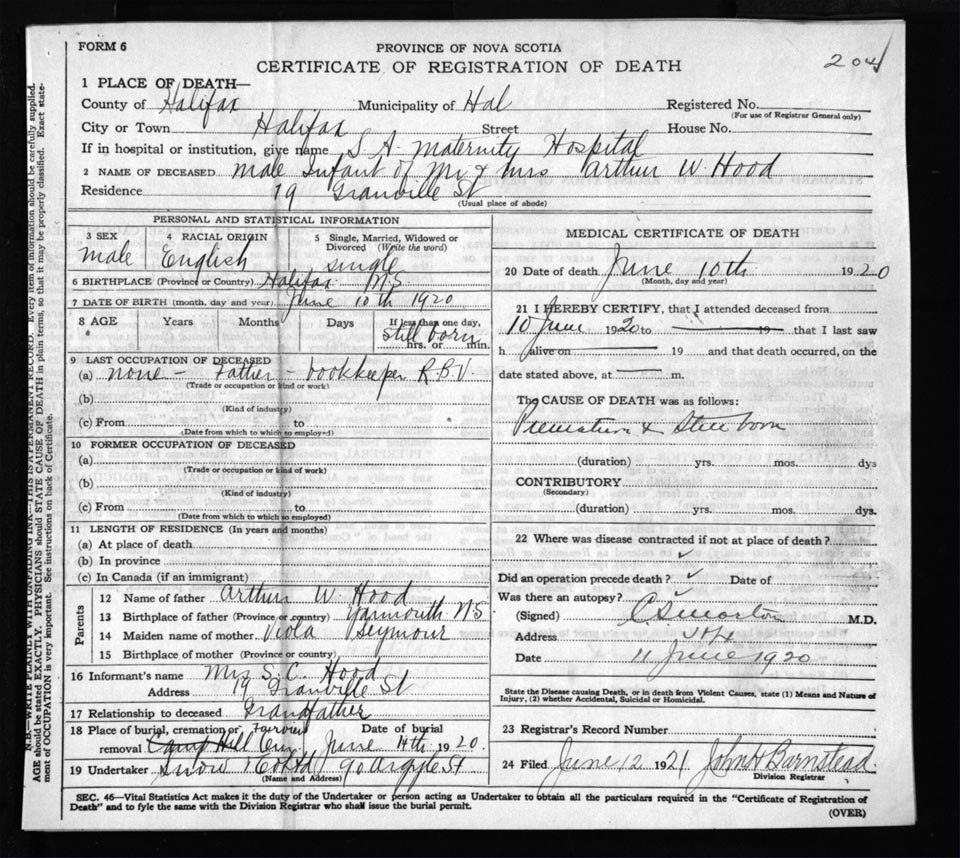 FORM 6
PROVINCE OF NOVA SCOTIA
CERTIFICATE OF REGISTRATION OF DEATH
204
1 PLACE OF DEATH—
County of Halifax Municipality of Hal Registered No.
(For use of Registrar General only)
City or Town Halifax Street House No.
If in hospital or institution, give name S. A. Maternity Hospital
2 NAME OF DECEASED male Infant of Mr & Mrs Arthur W. Hood
Residence 19 Granville St
(Usual place of abode)
PERSONAL AND STATISTICAL INFORMATION
3 SEX male
4 RACIAL ORIGIN English
5 Single, Married, Widowed or Divorced (Write the word) single
6 BIRTHPLACE (Province or Country) Halifax N.S.
7 DATE OF BIRTH (month, day and year) June 10th 1920
8 AGE Years Months Days If less than one day, hrs. or min. Still born
9 LAST OCCUPATION OF DECEASED
(a) none – Father – bookkeeper R.B.V.
(Trade or occupation or kind or work)
(b)
(Kind of industry)
(c) From to
(Date from which to which so employed)
10 FORMER OCCUPATION OF DECEASED
(a)
(Trade or occupation or kind of work)
(b)
(Kind of industry)
(c) From to
(Date from which to which so employed)
11 LENGTH OF RESIDENCE (In years and months)
(a) At place of death
(b) In province
(c) In Canada (if an immigrant)
Parents
12 Name of father Arthur W. Hood
13 Birthplace of father (Province or country) Yarmouth NS
14 Maiden name of mother Viola Seymour
15 Birthplace of mother (Province or country)
16 Informant's name Mrs S. C. Hood
Address 19 Granville St
17 Relationship to deceased Grandfather
18 Place of burial, cremation or removal Camp Hill Cem Fairview Date of burial June 14th 1920.
19 Undertaker Snow & Co Ltd 90 Argyle St
(Name and Address)
MEDICAL CERTIFICATE OF DEATH
20 Date of death June 10th 1920
(Month, day and year)
21 I HEREBY CERTIFY, that I attended deceased from
10 June 1920 to 19 that I last saw
h alive on 19 and that death occurred, on the
date stated above, at m.
The CAUSE OF DEATH was as follows:
Premature & Still born
(duration) yrs. mos. dys
CONTRIBUTORY
(Secondary)
(duration) yrs. mos. dys.
22 Where was disease contracted if not at place of death?
Did an operation precede death? Date of
Was there an autopsy?
(Signed) M.D.
Address
Date 11 June 1920
State the Disease causing Death, or in death from Violent Causes, state (1) Means and Nature of
Injury, (2) whether Accidental, Suicidal or Homicidal.
23 Registrar's Record Number
24 Filed June 12 1921 John H Barnstead
Division Registrar
SEC. 46—Vital Statistics Act makes it the duty of the Undertaker or person acting as Undertaker to obtain all the particulars required in the "Certificate of Registration of
Death" and to fyle the same with the Division Registrar who shall issue the burial permit.
(OVER)
N.B.—WRITE PLAINLY WITH UNFADING INK—THIS IS A PERMANENT RECORD. Every item of information should be carefully supplied.
AGE should be stated EXACTLY. PHYSICIANS should STATE CAUSE OF DEATH in plain terms, so that it may be properly classified. Exact state-
ment of OCCUPATION is very important. See instructions on back of Certificate.